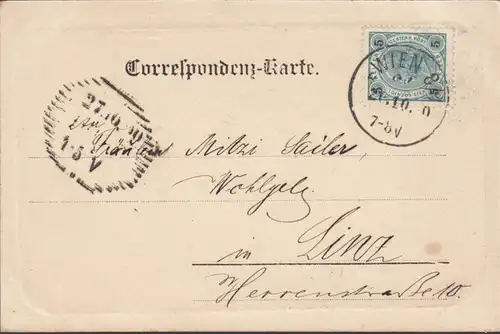 Correspondenz-Karte.
5 5
WIEN
.10. 0
7-8V
27.10. 00
1·3 V
An
Fräulein Mitzi Sailer
Wohlgeb.
in Linz
Herrenstraße 10.